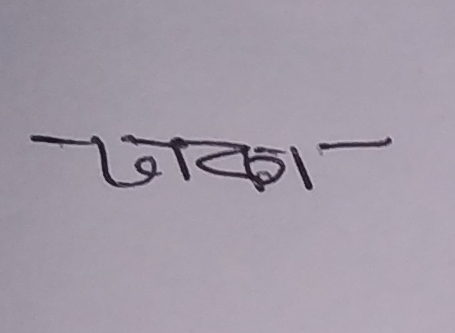 ঢাকা